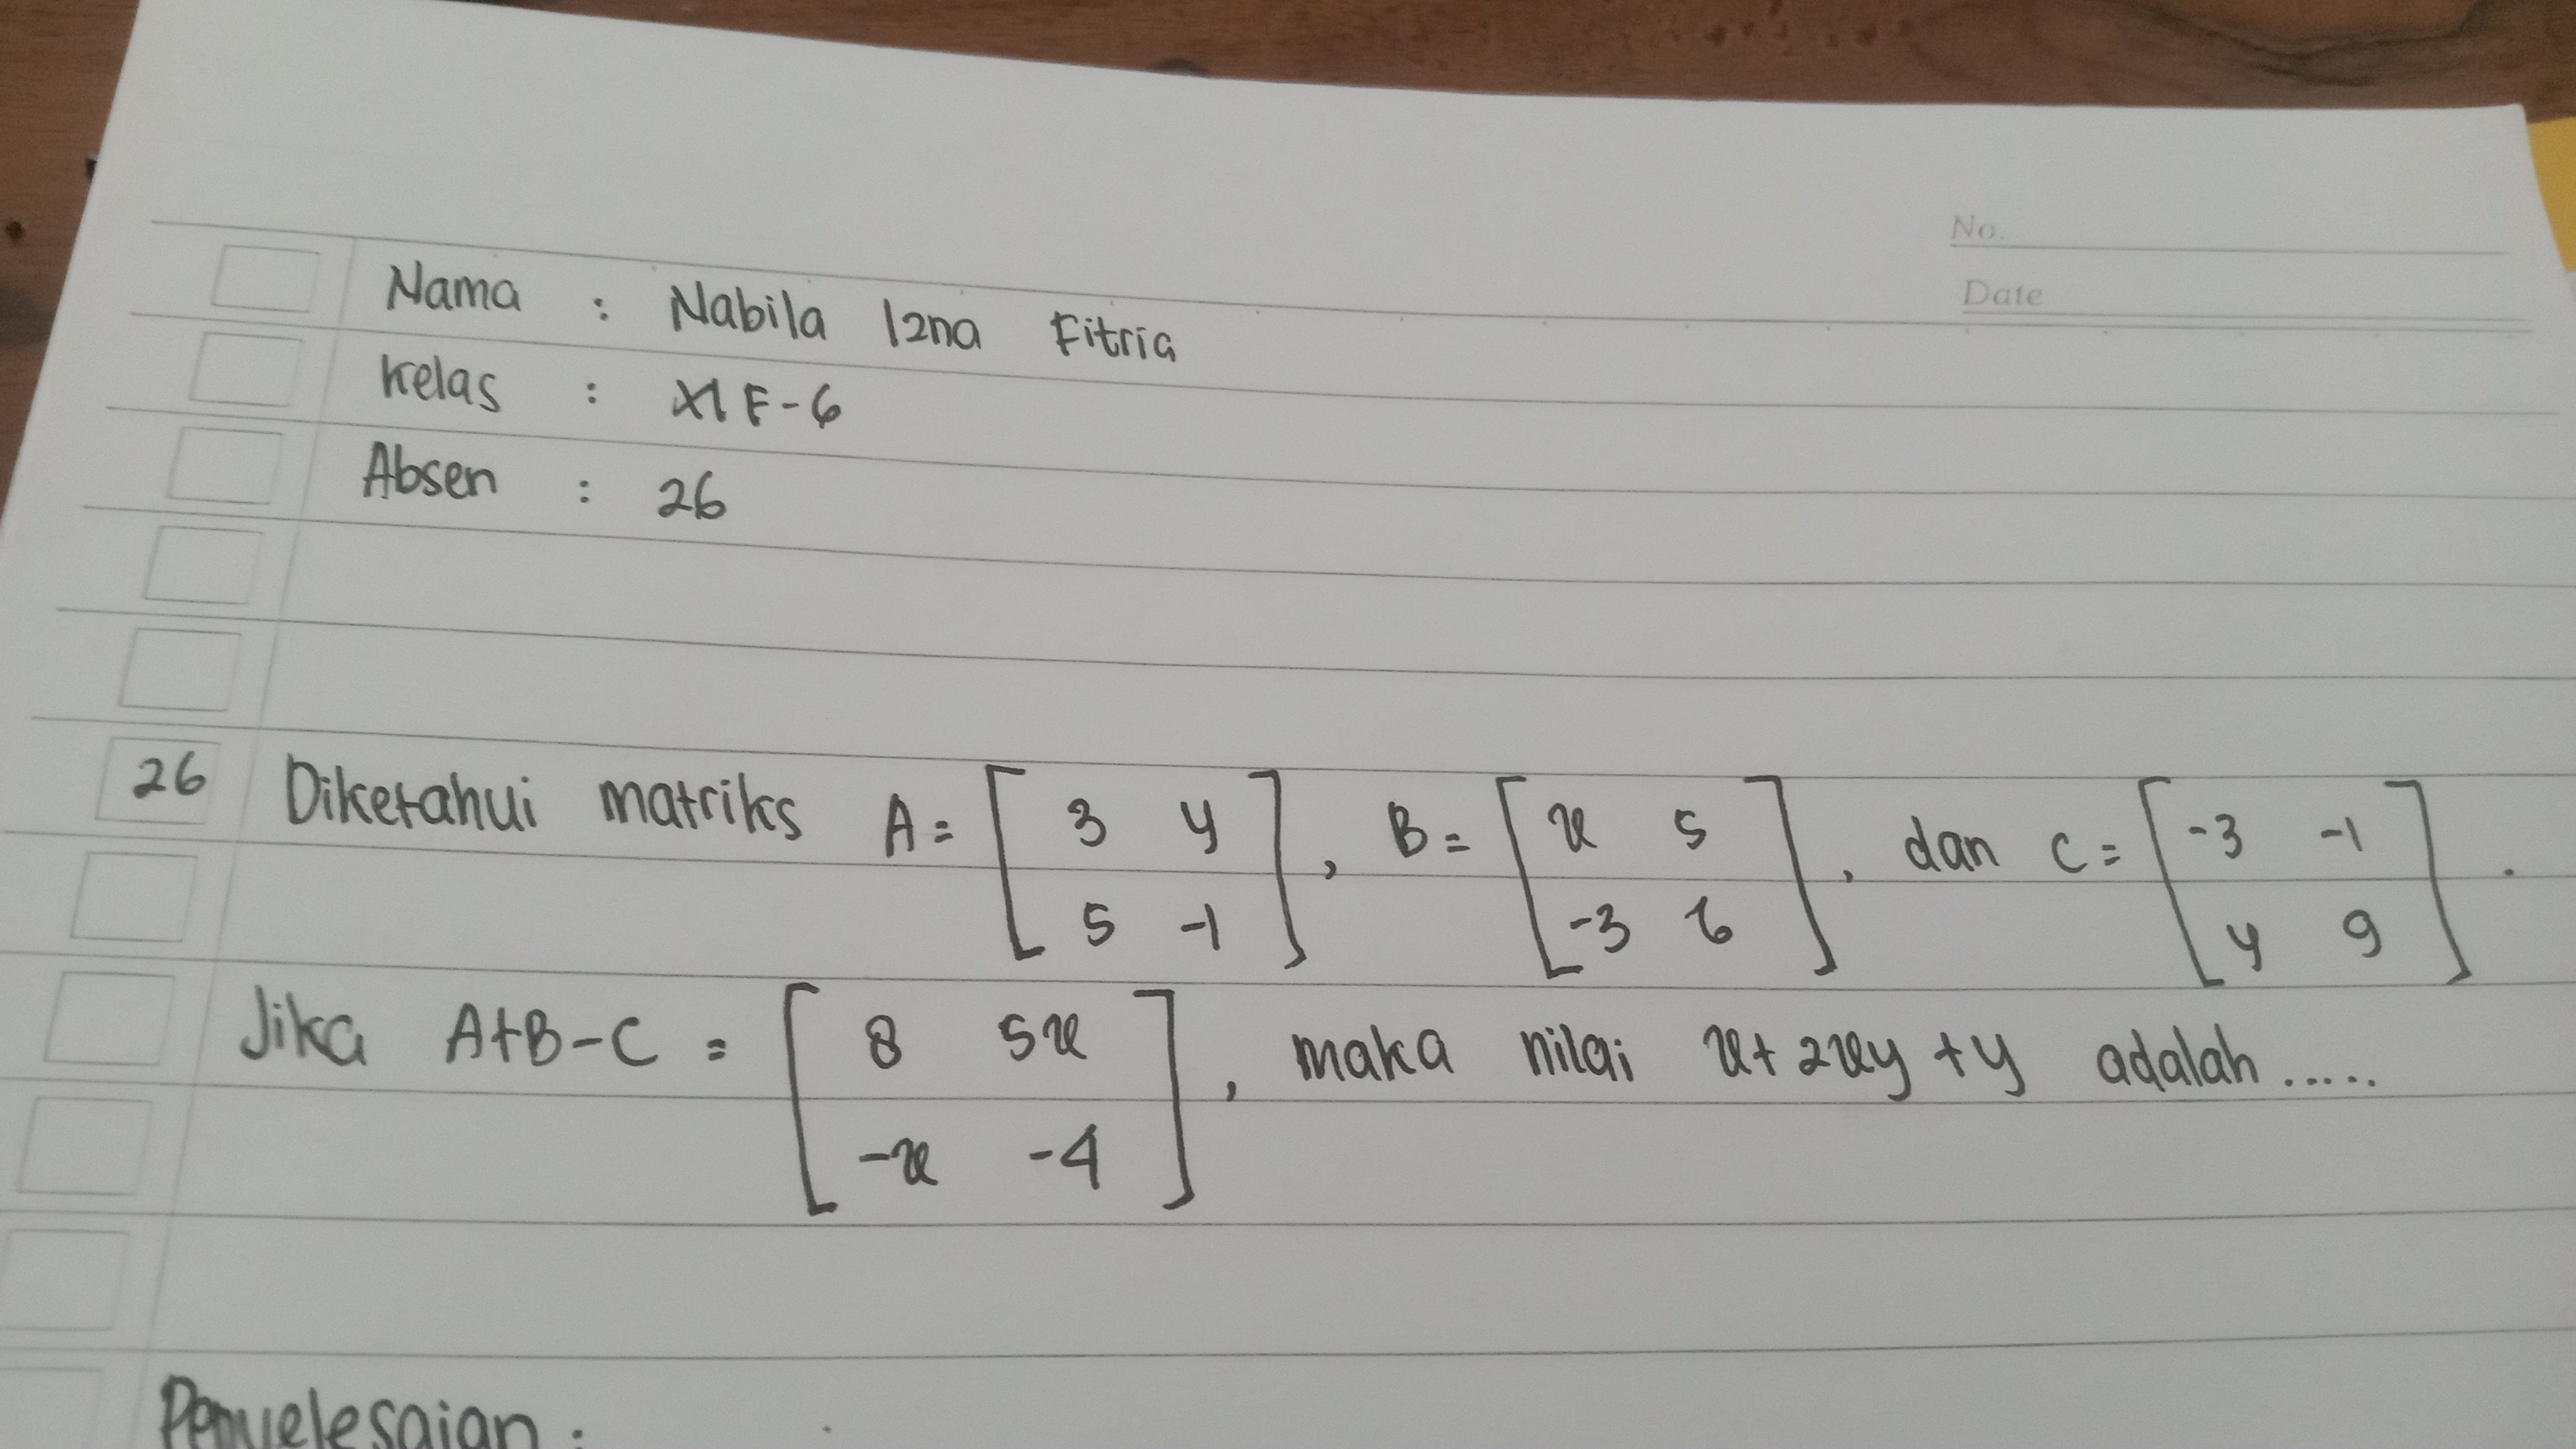 No.
Date
Nama : Nabila Izna Fitria
Kelas : XI F-6
Absen : 26
26 Diketahui matriks A = [ 3 y ], B = [ x 5 ], dan C = [ -3 -1 ].
[ 5 -1 ] [ -3 6 ] [ y 9 ]
Jika A+B-C = [ 8 5x ], maka nilai x + 2xy + y adalah .....
[ -x -4 ]
Penyelesaian :